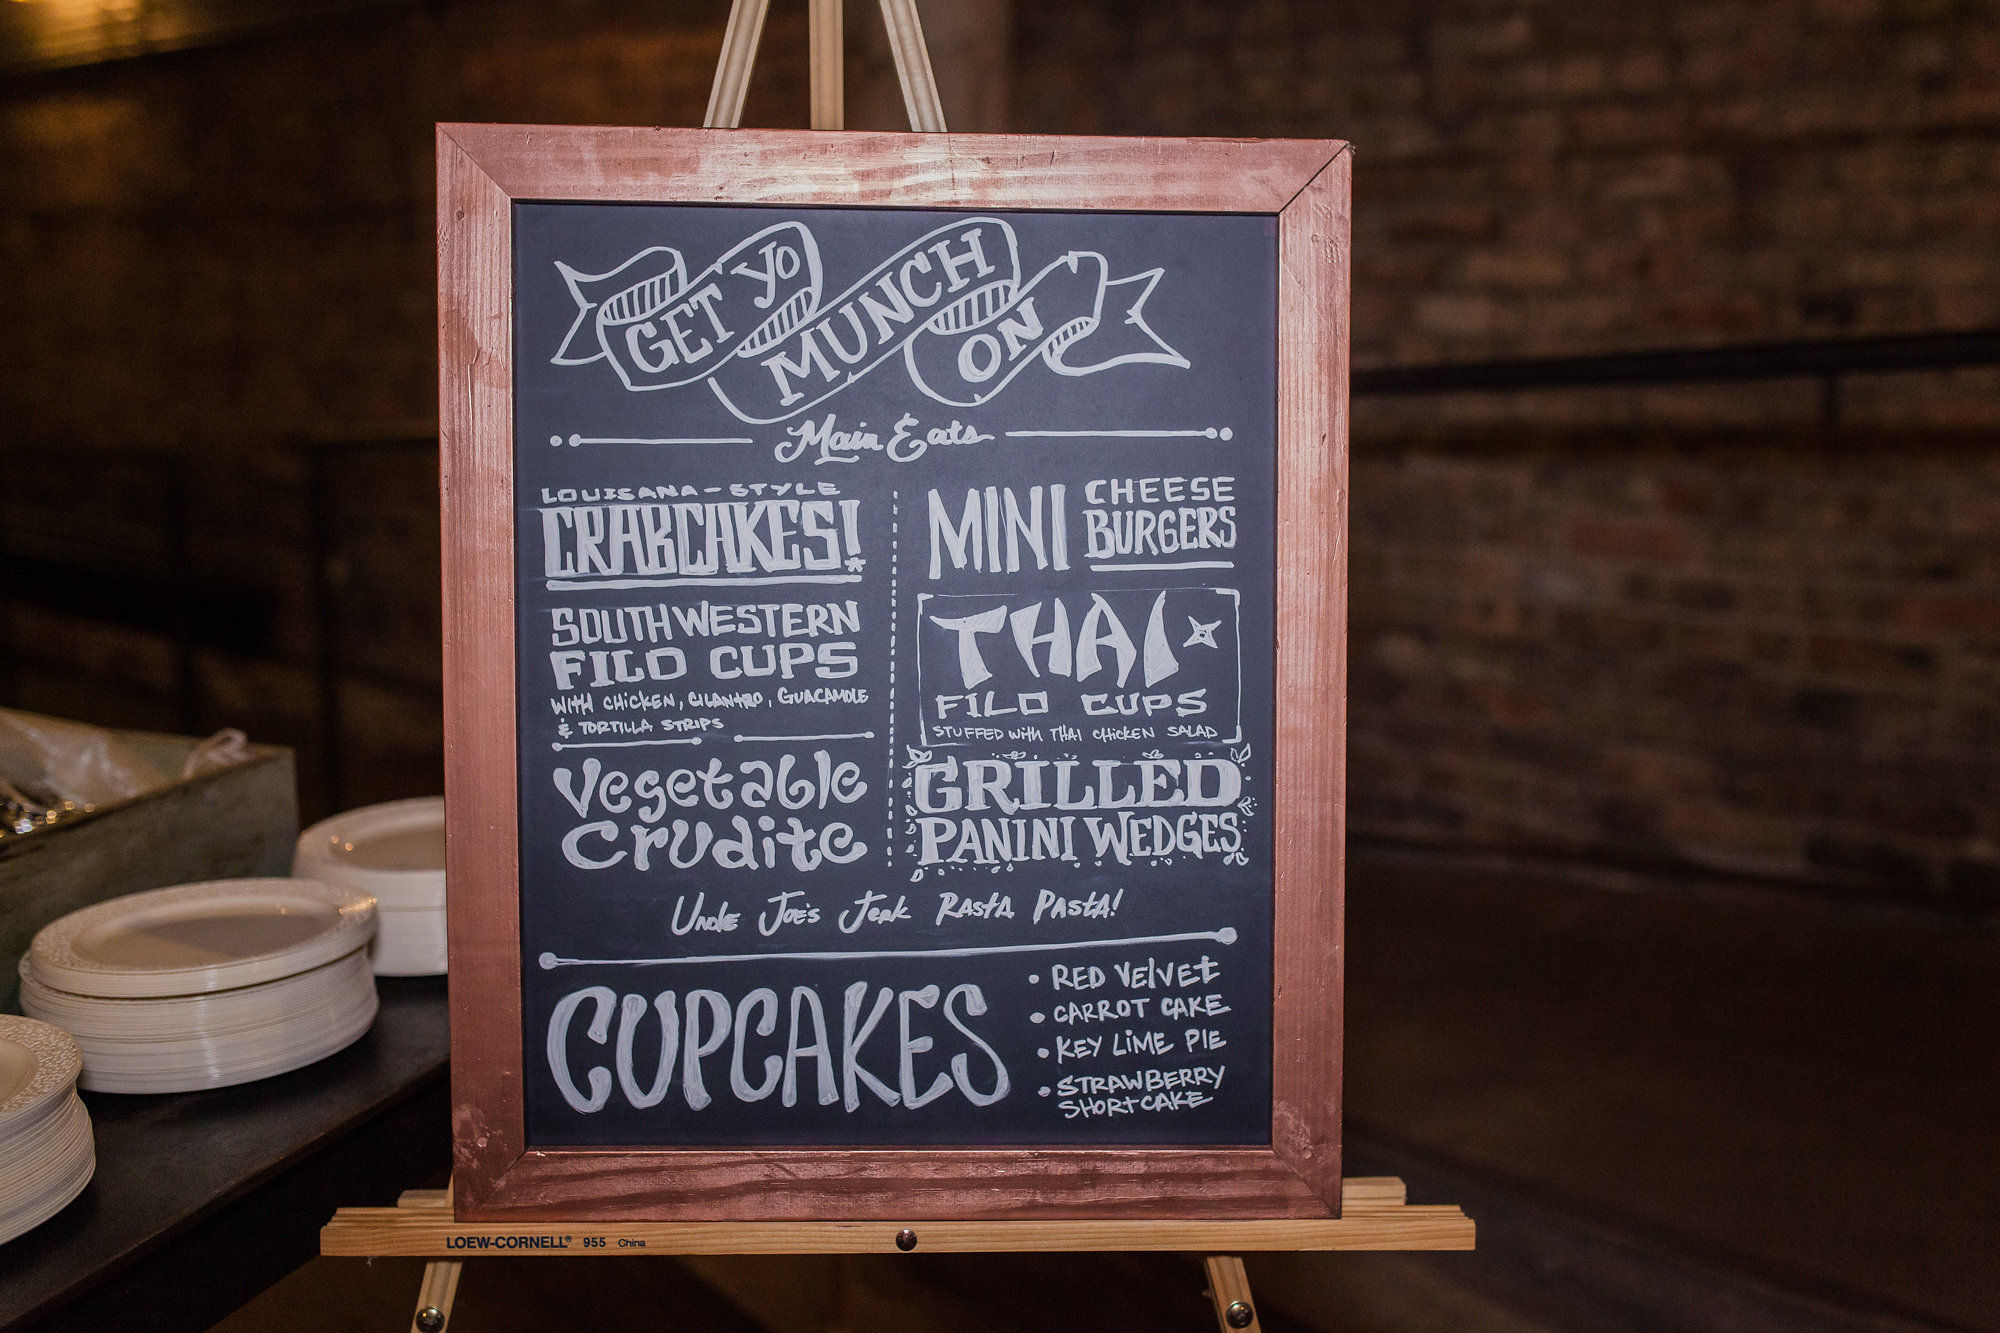 GET YO
MUNCH
ON
Main Eats
LOUISANA-STYLE
CRABCAKES!*
SOUTHWESTERN
FILO CUPS
WITH CHICKEN, CILANTRO, GUACAMOLE
& TORTILLA STRIPS
Vegetable
crudite
MINI
CHEESE
BURGERS
THAI
FILO CUPS
STUFFED WITH THAI CHICKEN SALAD
GRILLED
PANINI WEDGES
Uncle Joe's Jerk Rasta Pasta!
CUPCAKES
• RED VELVET
• CARROT CAKE
• KEY LIME PIE
• STRAWBERRY
SHORTCAKE
LOEW-CORNELL® 955 China